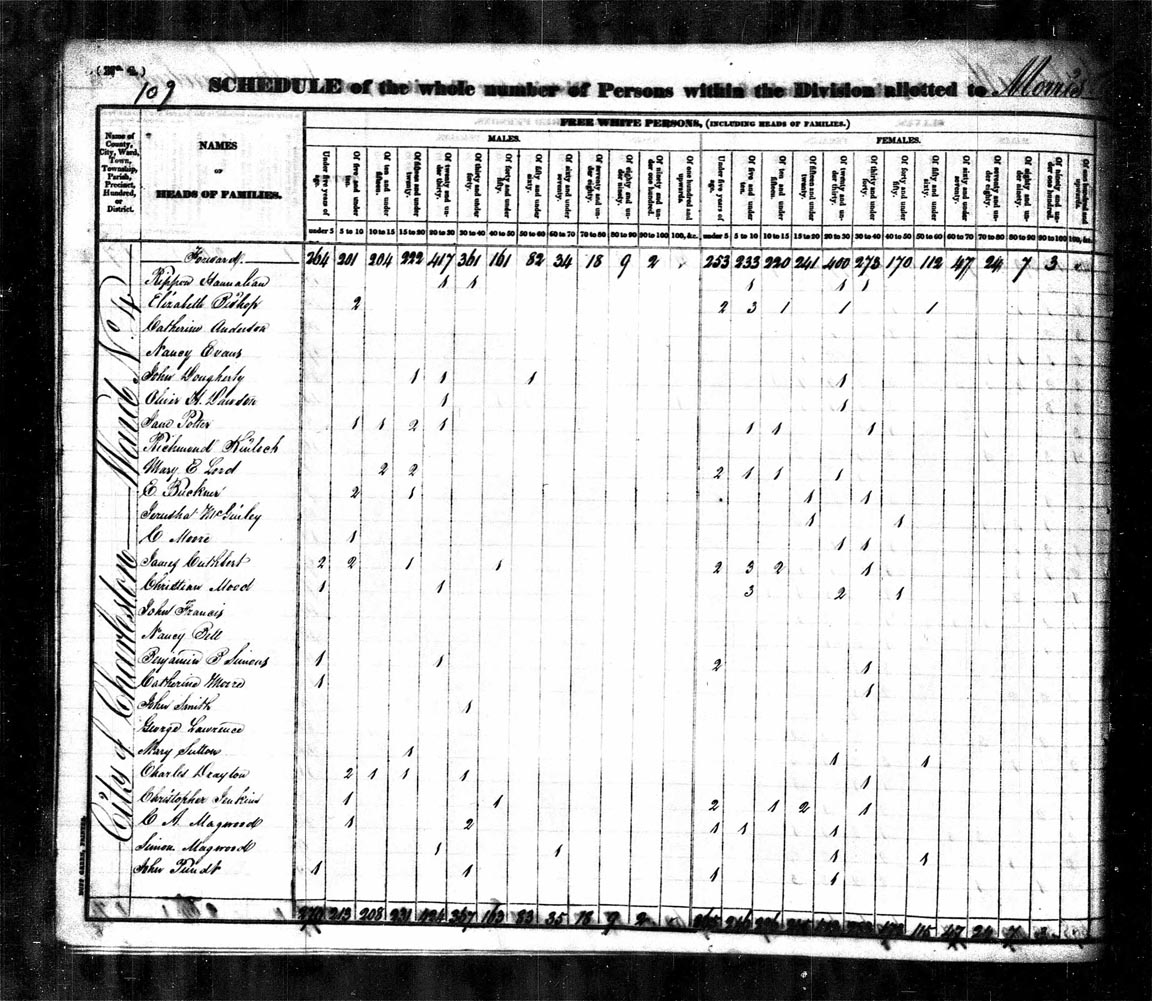 (No. 4.)
109
SCHEDULE of the whole number of Persons within the Division allotted to Morris
Name of County, City, Ward, Town, Township, Parish, Precinct, Hundred, or District.
NAMES OF HEADS OF FAMILIES.
FREE WHITE PERSONS, (INCLUDING HEADS OF FAMILIES.)
MALES. FEMALES.
Under five years of age. Of five and under ten. Of ten and under fifteen. Of fifteen and under twenty. Of twenty and under thirty. Of thirty and under forty. Of forty and under fifty. Of fifty and under sixty. Of sixty and under seventy. Of seventy and under eighty. Of eighty and under ninety. Of ninety and under one hundred. Of one hundred and upwards. Under five years of age. Of five and under ten. Of ten and under fifteen. Of fifteen and under twenty. Of twenty and under thirty. Of thirty and under forty. Of forty and under fifty. Of fifty and under sixty. Of sixty and under seventy. Of seventy and under eighty. Of eighty and under ninety. Of ninety and under one hundred. Of one hundred and upwards.
under 5 5 to 10 10 to 15 15 to 20 20 to 30 30 to 40 40 to 50 50 to 60 60 to 70 70 to 80 80 to 90 90 to 100 100, &c. under 5 5 to 10 10 to 15 15 to 20 20 to 30 30 to 40 40 to 50 50 to 60 60 to 70 70 to 80 80 to 90 90 to 100 100, &c.
City of Charleston Ward No. 4
Forward. 264 201 204 222 417 361 161 82 34 18 9 2 253 233 220 241 400 273 170 112 47 24 7 3
Rippon Hannahan 1 1 1 1 1
Elizabeth Bishop 2 2 3 1 1 1
Catherine Anderson
Nancy Evans
John Dougherty 1 1 1 1
Oliver H. 1 1
Jane Potter 1 1 2 1 1 1 1
Richmond Kinloch
Mary E Lord 2 2 2 1 1 1
E. Buckner 2 1 1 1
Jerusha McGinley 1 1
C Moore 1 1 1
James Cuthbert 2 2 1 1 2 3 2 1
Christian Mood 1 1 3 2 1
John Francis
Nancy Pell
Benjamin P Simons 1 1 2 1
Catherine Moore 1 1
John Smith 1
George Lawrence
Mary Sutton 1 1 1
Charles Drayton 2 1 1 1 1
Christopher Jenkins 1 1 2 1 2 1
C A Magwood 1 2 1 1 1
Simon Magwood 1 1 1 1
John 1 1 1 1
270 213 208 231 424 367 163 83 35 18 9 2 115 47 24 7 3